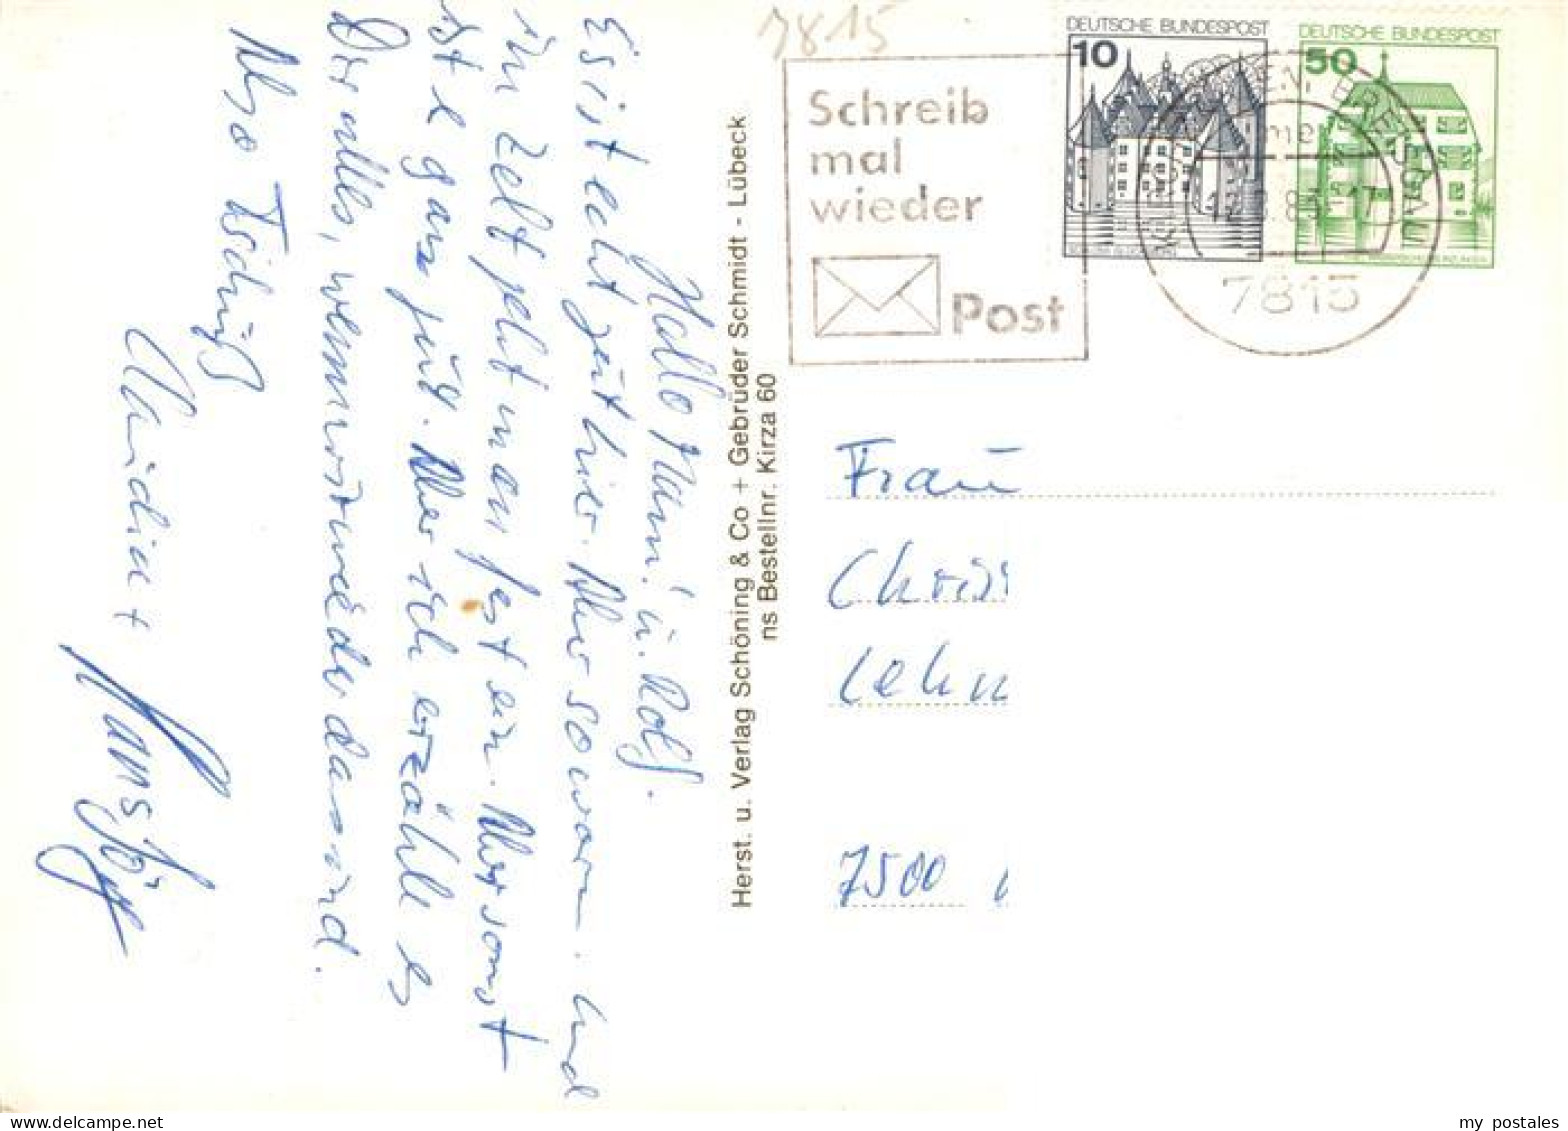 7815
DEUTSCHE BUNDESPOST
10
DEUTSCHE BUNDESPOST
50
Schreib
mal
wieder
Post
7815
Hallo Mami! u. Rolf.
Es ist echt gut hier. Aber so warm. Und
im Zelt geht man fest ein. Aber sonst
ist e ganz gut. Aber ich erzähle es
Dir alles, wenn wir wieder da sind.
Also Tschüß
Hansjörg
Herst. u. Verlag Schöning & Co + Gebrüder Schmidt - Lübeck
ns Bestellnr. Kirza 60
Frau
Chris
Lehn
7500
my postales